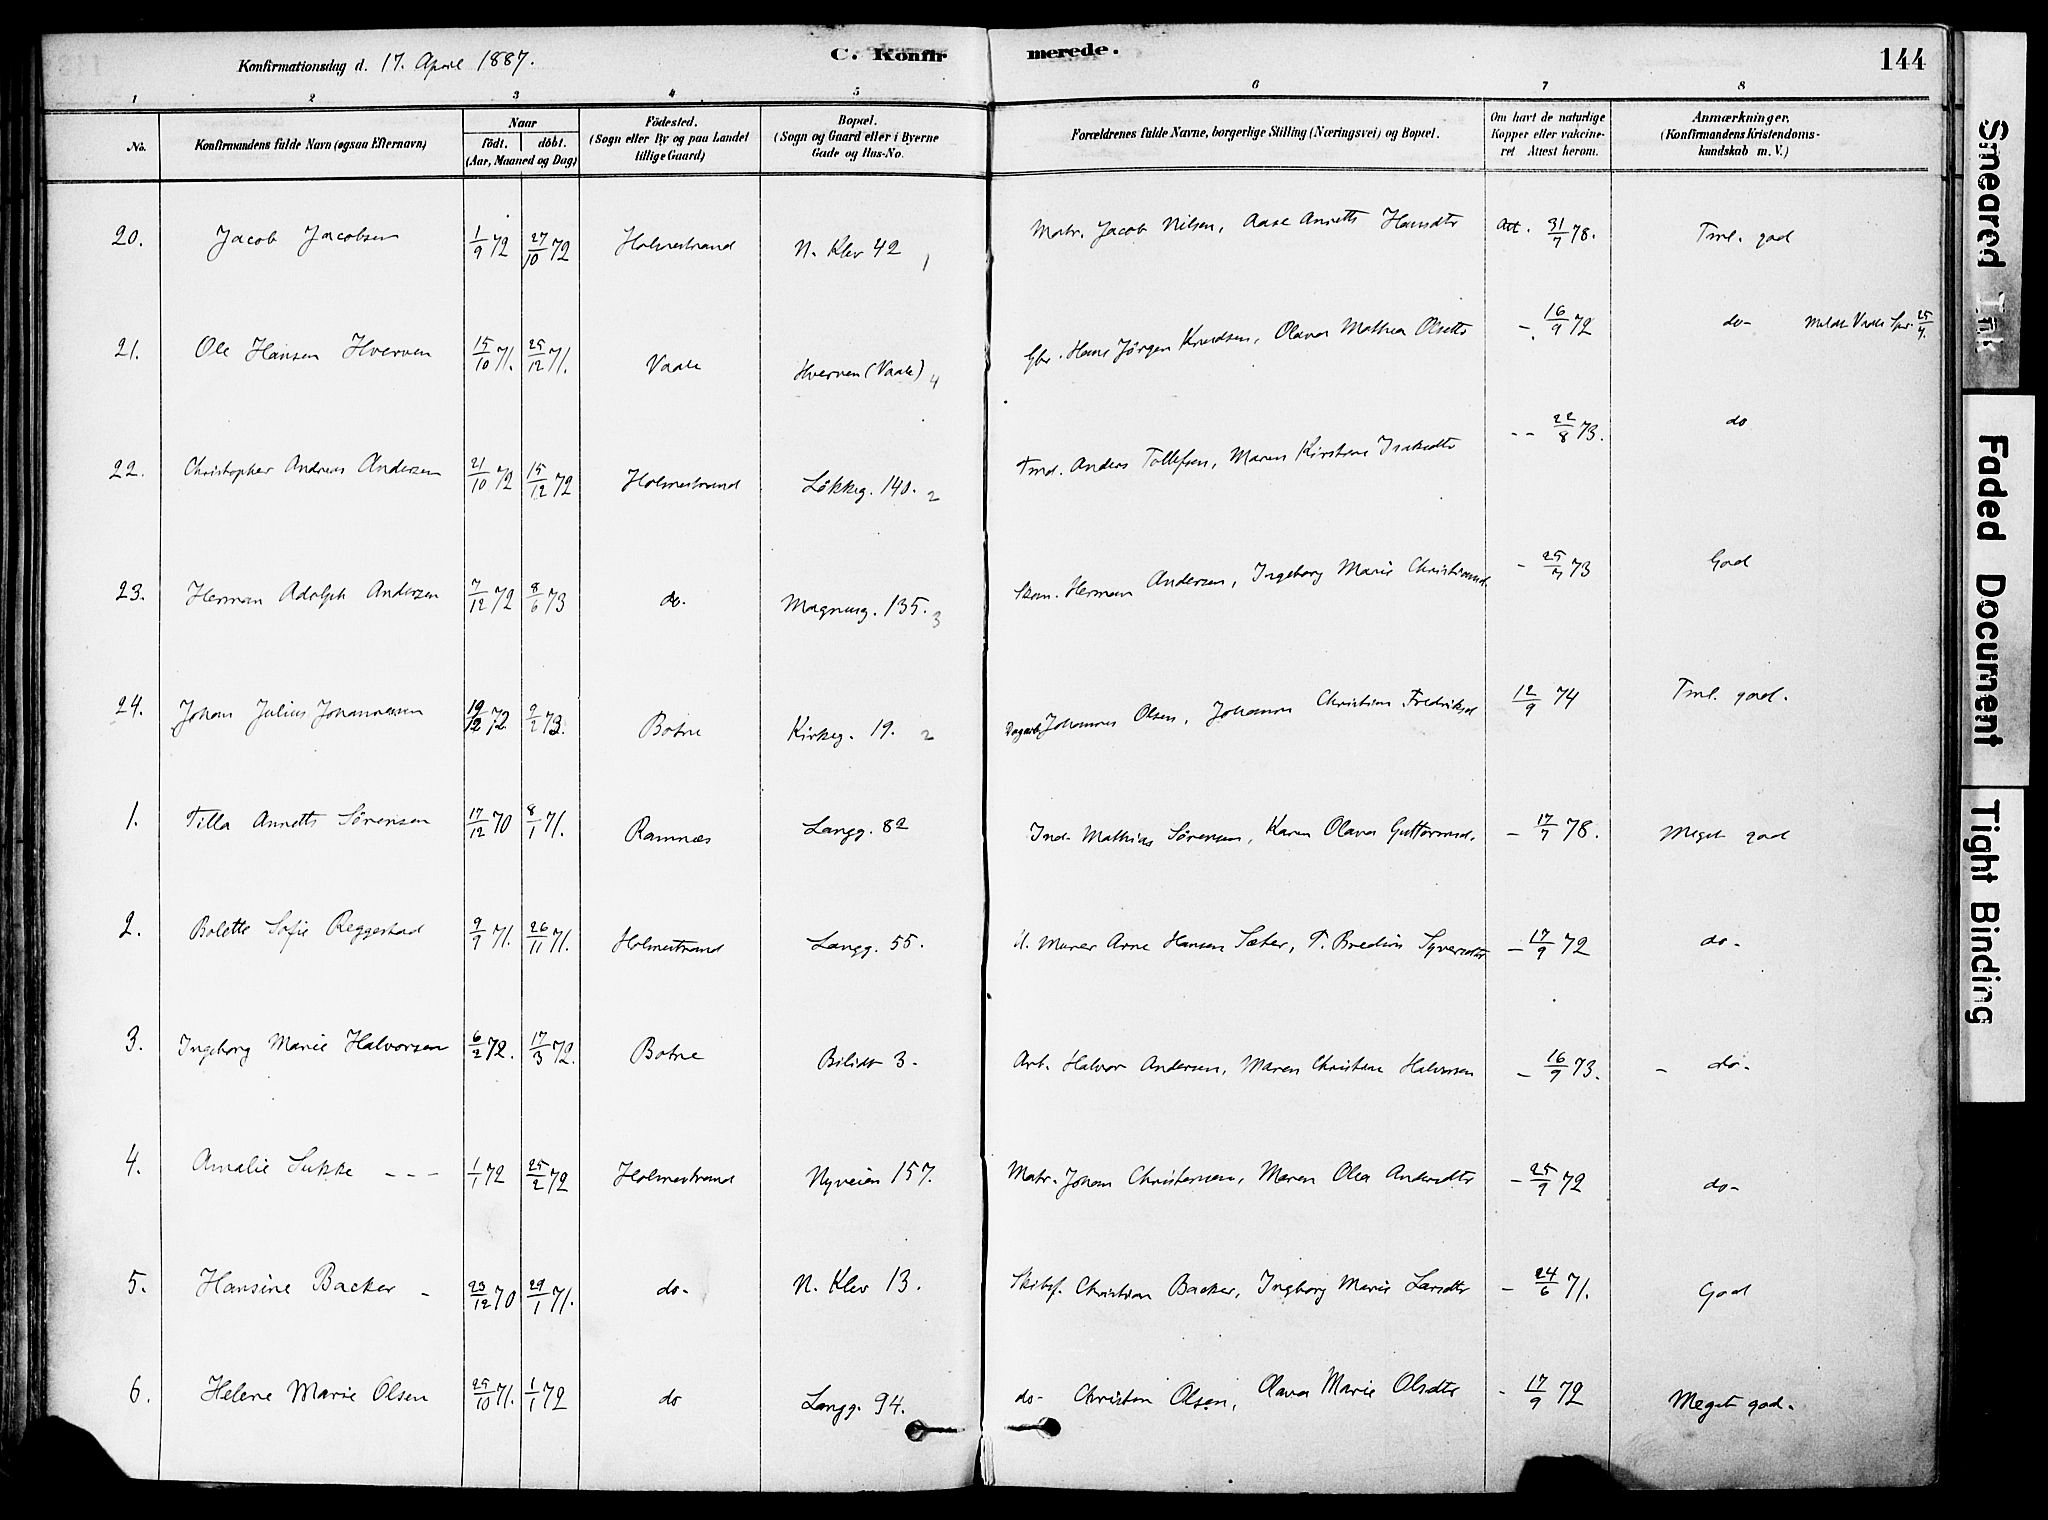 Konfirmationsdag d. 17. April 1887.
C. Konfirmerede.
144
1 2 3 4 5 6 7 8
No.
Konfirmandens fulde Navn (ogsaa Efternavn)
Naar
Födt. döbt.
(Aar, Maaned og Dag)
Födested.
(Sogn eller By og paa Landet
tillige Gaard)
Bopæl.
(Sogn og Gaard eller i Byerne
Gade og Hus-No.
Forældrenes fulde Navne, borgerlige Stilling (Næringsvei) og Bopæl.
Om havt de naturlige
Kopper eller vakcine-
ret Attest herom.
Anmærkninger.
(Konfirmandens Kristendoms-
kundskab m. V.)
20. Jacob Jacobsen 1/9 72 27/10 72 Holmestrand N. Klev 42 1 Matr. Jacob Nilsen, Aase Annette Hansdtr Att. 31/7 78. Tml. god
21. Ole Hansen Hverven 15/10 71. 25/12 71. Vaale Hverven (Vaale) 4 Gbr. Hans Jörgen Knudsen, Olava Mathea Olsdtr - 16/9 72 do- Meldt Vaale Spr. 25/4.
22. Christopher Andreas Andersen 21/10 72 15/12 72 Holmestrand Løkkeg. 140. 2 Tmd. Anders Tollefsen, Maren Kirstine Isaksdtr -- 22/8 73. do
23. Herman Adolph Andersen 7/12 72 8/6 73 do. Magnusg. 135. 3 Skom. Herman Andersen, Ingeborg Marie Christiansd. - 73 God
24. Johan Julius Johannessen 19/12 72 9/2 73. Botne Kirkeg. 19. 2 Dagarb. Johannes Olsen, Johanne Christine Fredriksd 12/9 74 Tml. god.
1. Tilla Annette Sörensen 17/12 70 8/1 71. Ramnæs Langg. 82 Ind. Mathias Sörensen, Karen Olava Guttormsd. - 17/7 78. Meget god
2. Bolette Sofie Reggestad 9/9 71. 26/11 71. Holmestrand Langg. 55. U. Murer Arne Hansen Sæter, T. Bredine Syversdtr - 17/9 72 do-
3. Ingeborg Marie Halvorsen 6/2 72. 17/3 72. Botne Bilidt 3. Arb. Halvor Andersen, Maren Christine Halvorsen - 16/9 73. - do-
4. Amalie Sukke - - - 1/1 72 25/2 72 Holmestrand Nyveien 157. Matr. Johan Christensen, Maren Olea Andersdtr - 25/9 72 do-
5. Hansine Backer - 23/12 70 29/1 71. do- N. Klev 13. Skibsf. Christian Backer, Ingeborg Marie Larsdtr - 24/6 71. God
6. Helene Marie Olsen 29/10 71. 1/1 72 do Langg. 94. do- Christian Olsen, Olava Marie Olsdtr - 17/9 72 Meget god.
Smeared Ink
Faded Document
Tight Binding